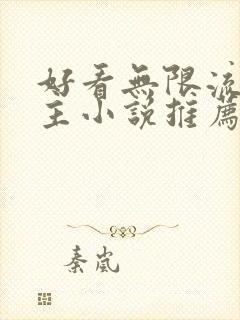 好看無限流
主小說推薦
秦嵐